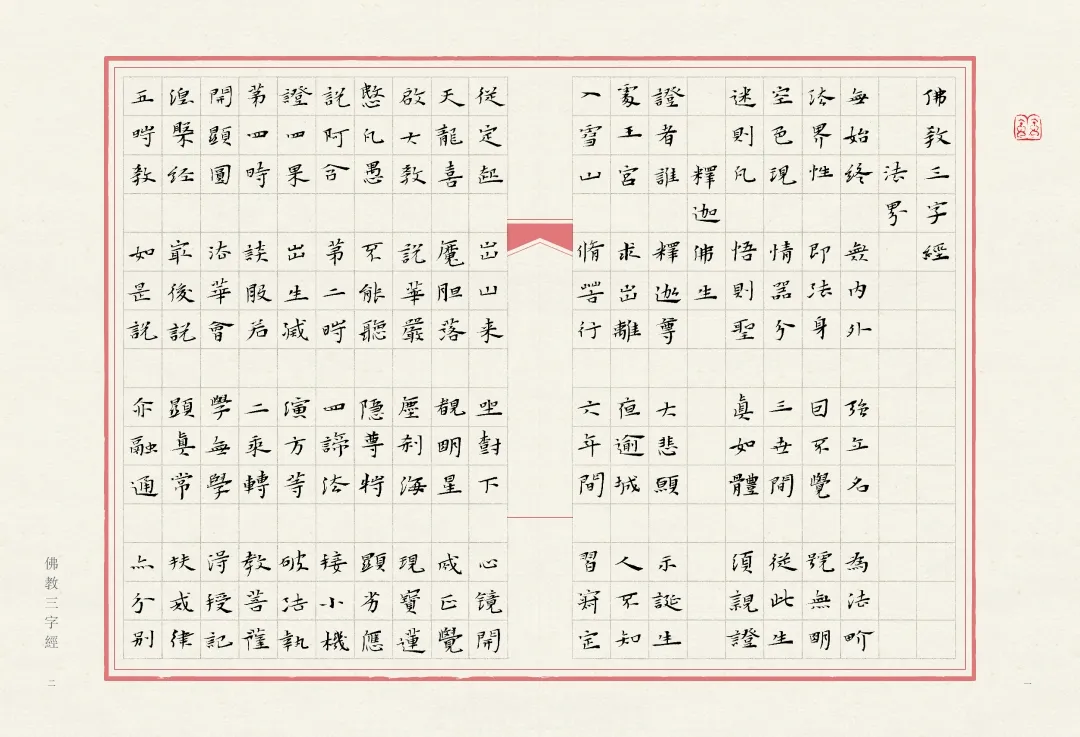 佛教三字經
法界
無始終 無內外 強立名 為法界
法界性 即法身 因不覺 號無明
空色現 情器分 三世間 從此生
迷則凡 悟則聖 眞如體 須親證
釋迦佛生
證者誰 釋迦尊 大悲願 示誕生
處王宮 求出離 夜逾城 人不知
入雪山 脩苦行 六年間 習禪定
一
從定起 出山来 坐樹下 心镜開
天龍喜 魔胆落 覩明星 成正覺
啟大教 說華嚴 塵剎海 現寶蓮
愍凡愚 不能聽 隱尊特 顯劣應
說阿含 第二時 四諦法 接小機
證四果 出生滅 演方等 破法執
第四時 談般若 二乘轉 教菩薩
開顯圓 法華會 學無學 得授記
涅槃經 最後說 顯眞常 扶戒律
五時教 如是說 亦融通 亦分別
佛教三字經
二